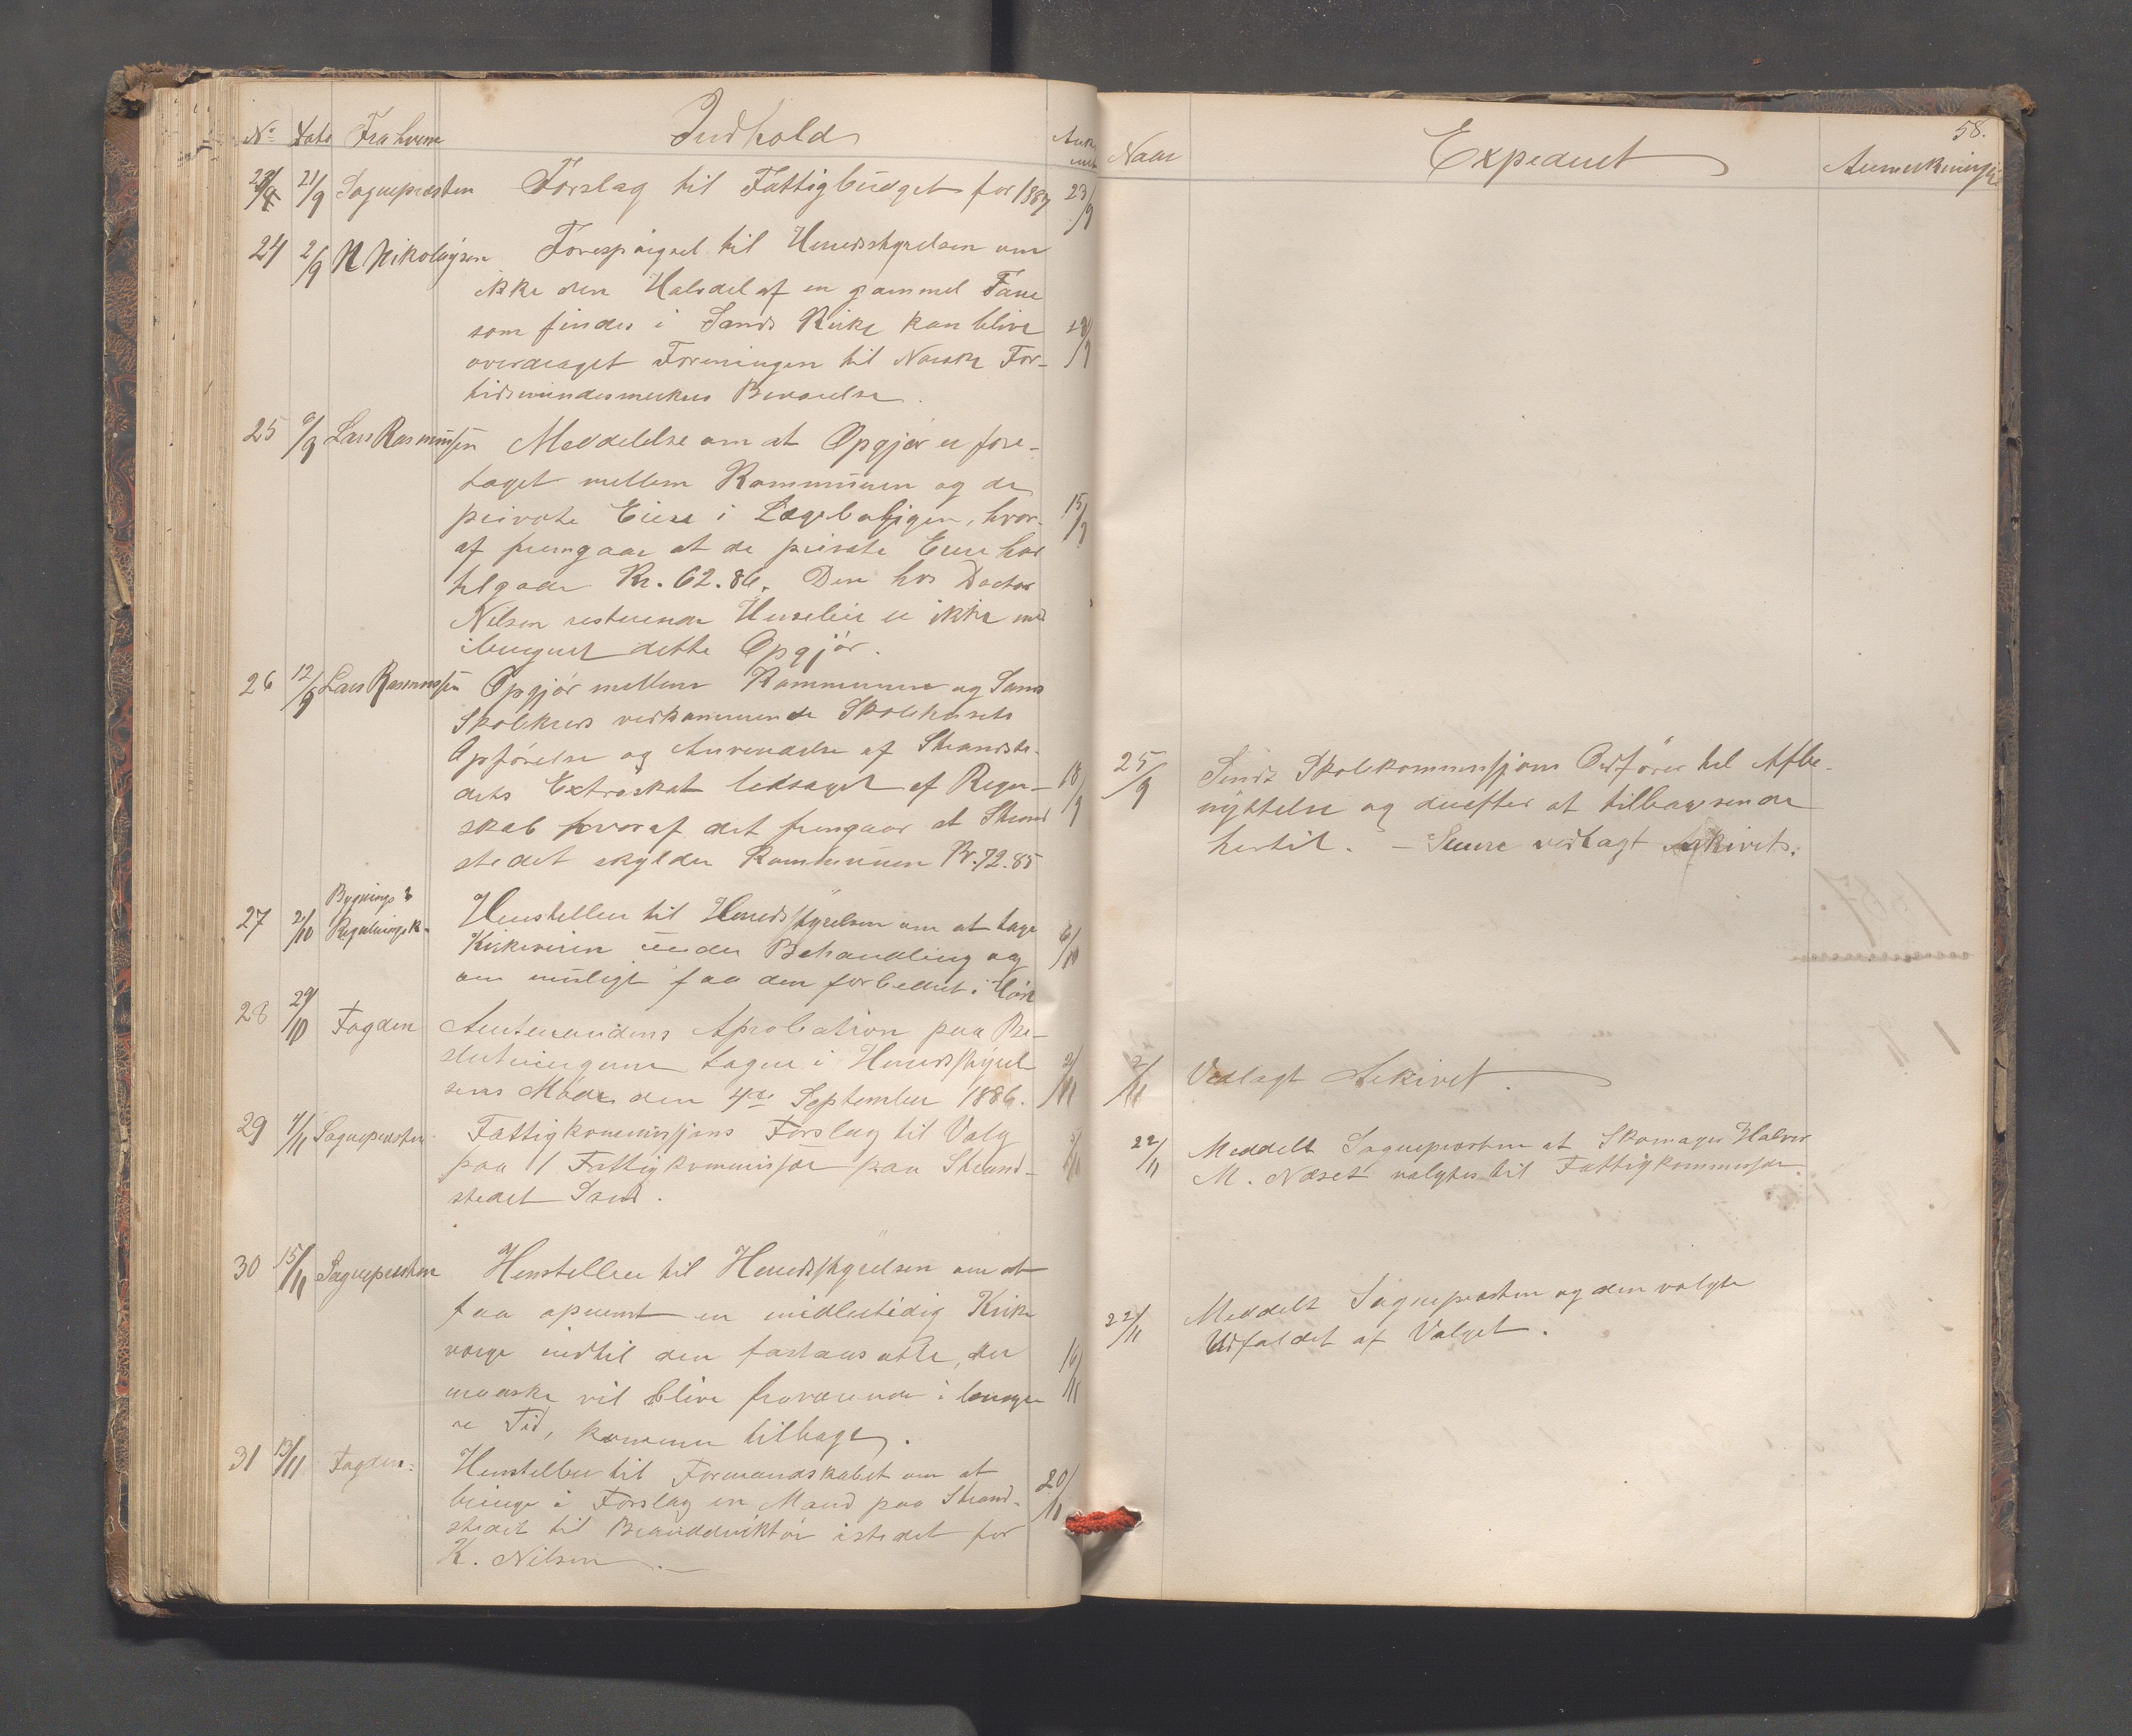 No Dato Fra hvem Indhold Ank
23 21/9 Sognepresten Forslag til Fattigbudget for 1887 23/9
24 2/9 N Nikolaysen Forespørgsel til Herredsstyrelsen om
ikke den Halvdel af en gammel Tavle
som findes i Sands Kirke kan blive
overdraget Foreningen til Norske For-
tidsmindesmerkers Bevarelse.
25 9/9 Lars Rasmussen Meddelelse om at Opgjør er fore-
taget mellem Kommunen og de 15/9
private Eiere i Lægeboligen, hvor-
af fremgaar at de private Eiere har
tilgode Kr. 62.86. Den hos Doctor
Nilsen resterende Husleie er ikke med
iberegnet dette Opgjør.
26 12/9 Lars Rasmussen Opgjør mellem Kommunen og Sands
Skolekreds vedkommende Skolehusets
Opførelse og Anvendelse af Strandste-
dets Extraskat ledsaget af Regn- 18/9
skab hvoraf det fremgaar at Strand
stedet skylder Kommunen Kr. 72.85
27 2/10 Bygnings &
Reguleringsk. Henstiller til Herredsstyrelsen om at tage
Kirkeveien under Behandling og 6/10
om muligt faa den forbedret i Høst
28 29/10 Fogden Amtmandens Aprobation paa Be-
slutningerne tagne i Herredsstyrel 2/11
sens Møde den 4de September 1886.
29 4/11 Sognepresten Fattigkommissjons Forslag til Valg
paa 1 Fattigkommissær paa Strand- 5/11
stedet Sand.
30 15/11 Sognepresten Henstiller til Herredsstyrelsen om at
faa opnevnt en midlertidig Kirke
verge indtil den fastansatte, der 16/11
maaske vil blive fraværende i længe
re Tid, kommer tilbage.
31 13/11 Fogden: Henstiller til Formandskabet om at
bringe i Forslag en Mand paa Strand- 20/11
stedet til Branddirektør istedet for
K. Nilsen.
58.
Naar Expederet Anmerkninger
25/9 Sendt Skolekommissjons Ordfører til Afbe-
nyttelse og derefter at tilbagesende
hertil. – Senere vedlagt Arkivet.
2/11 Vedlagt Arkivet.
22/11 Meddelt Sognepresten at Skomager Halvor
M. Næset valgtes til Fattigkommissær.
22/11 Meddelt Sognepresten og den valgte
Udfaldet af Valget.